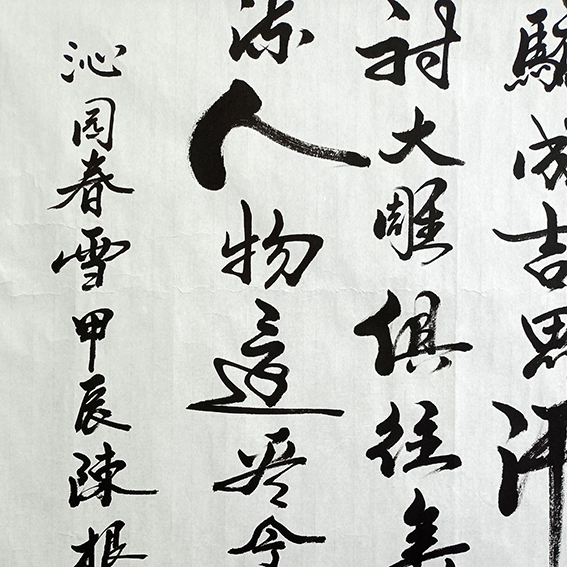 驕成吉思汗
射大雕俱往矣
流人物還看今
沁園春雪甲辰陳根